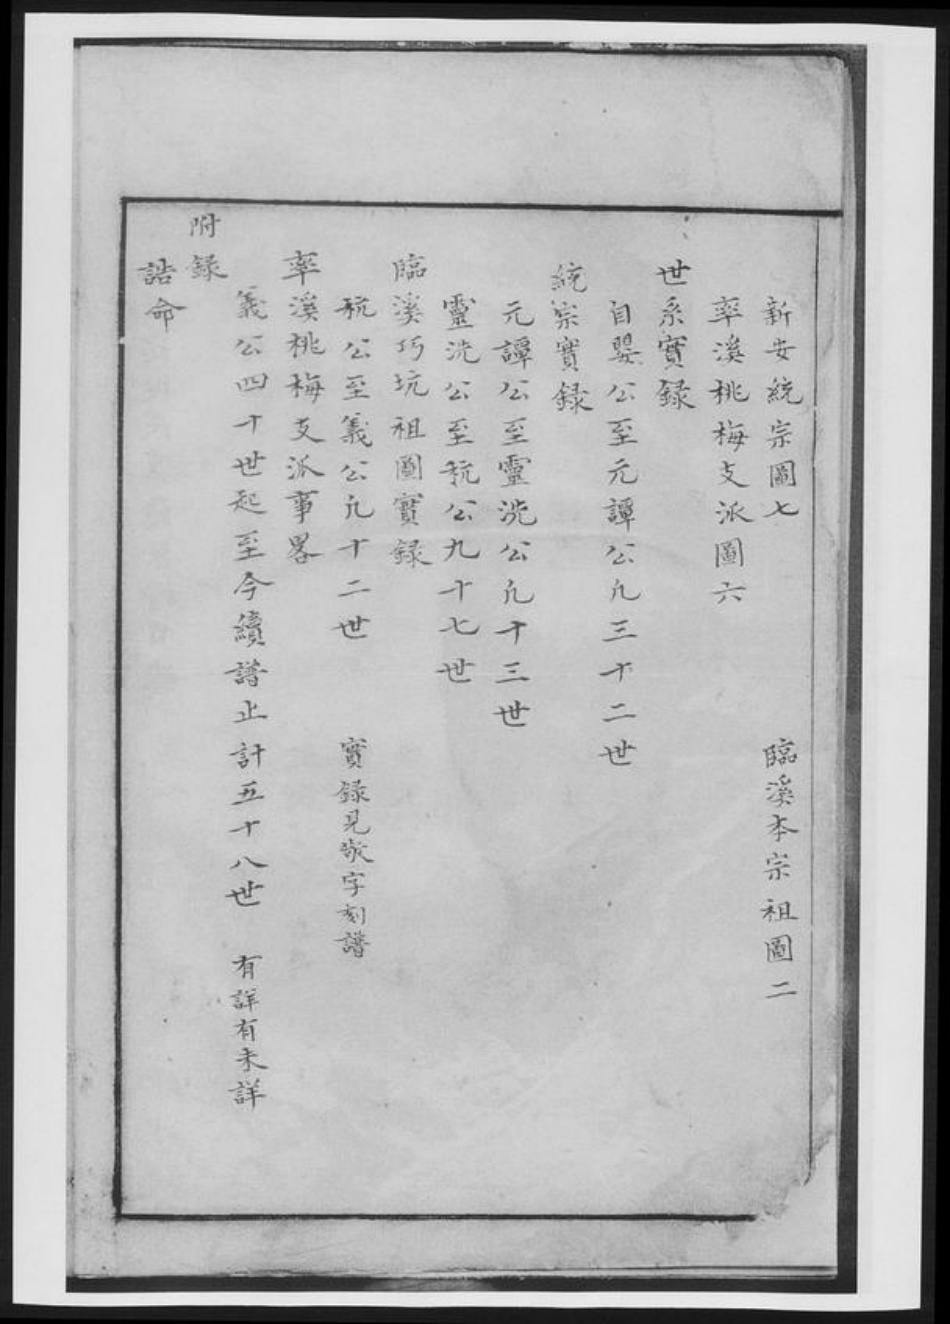 新安統宗圖七 臨溪本宗祖圖二
率溪桃梅支派圖六
世系實錄
自嬰公至元譚公凡三十二世
統宗實錄
元譚公至靈洗公凡十三世
靈洗公至秔公九十七世
臨溪巧坑祖圖實錄
秔公至義公凡十二世 實錄見嵗字刻譜
率溪桃梅支派事畧
義公四十世起至今續譜止計五十八世 有詳有未詳
附錄
誥命